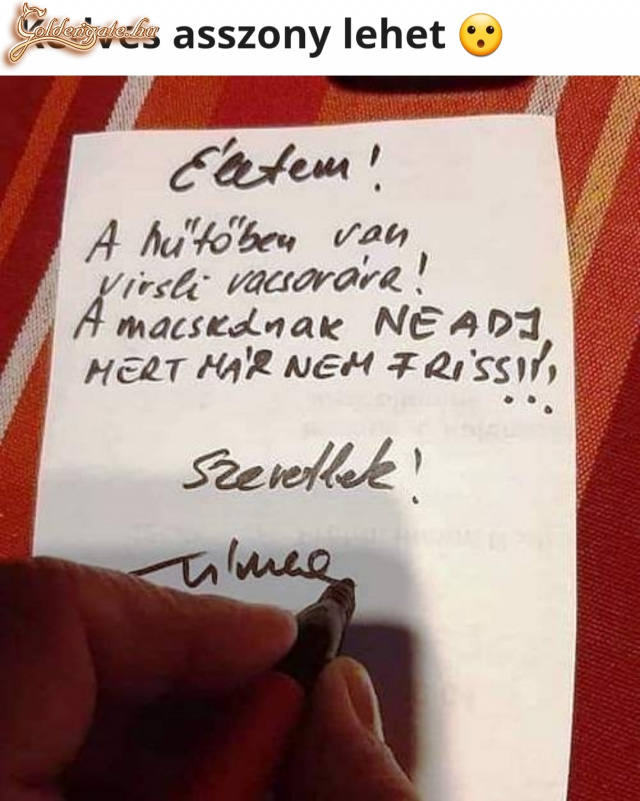 Goldengate.hu
Kedves asszony lehet 😮
Életem!
A hűtőben van
virsli vacsorára!
A macskának NE ADJ,
MERT MÁR NEM FRISS!!!
...
Szeretlek!
Tímea